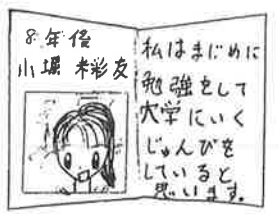 8年后
小堀 彩友
私はまじめに
勉強をして
大学にいく
じゅんびを
していると
思います。